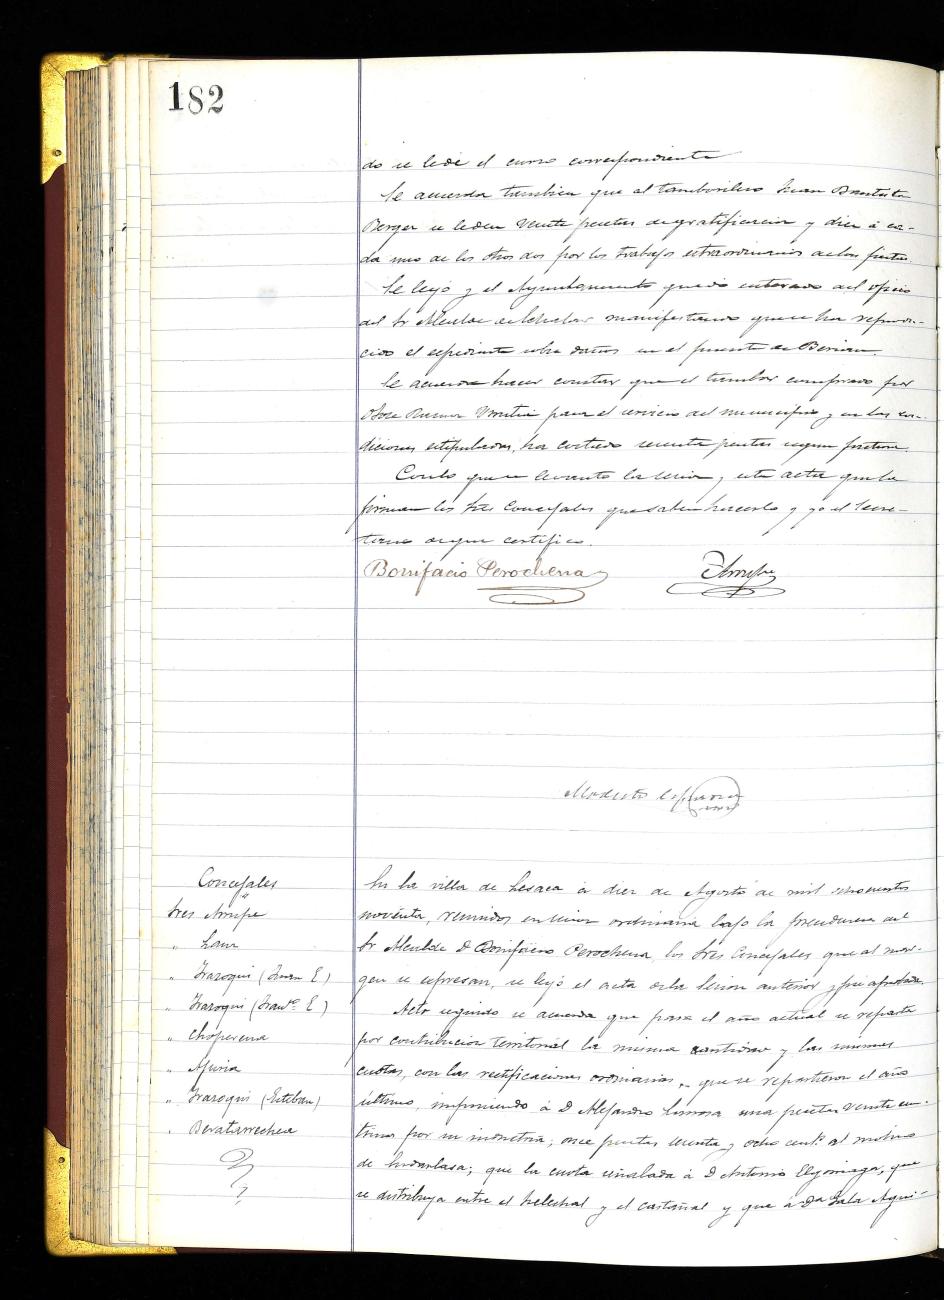 182
do se le dé el curso correspondiente
Se acuerda tambien que al tamborilero Juan Bautista
Berger se le den veinte pesetas de gratificacion y diez á ca-
da uno de los otros dos por los trabajos estraordinarios de las fiestas.
Se leyó y el Ayuntamiento quedó enterado del oficio
del Sr Alcalde de manifestando que se ha
el espediente sobre daños en el puente de
Se acuerda hacer constar que el tambor comprado por
Jose Ramon para el servicio del municipio y en las con-
diciones estipuladas, ha costado pesetas segun factura.
Con lo que se levantó la sesion y esta acta que la
firman los Sres Concejales que saben hacerlo y yo el Secre-
tario de que certifico.
Bonifacio Perochena
Arrupe
Modesto Espinosa
Concejales
Sres Arrupe
" Lanz
" Irazoqui (Juan E)
" Irazoqui (Franco E)
" Choperena
"
" Irazoqui (Esteban)
" Beratarrechea
En la villa de Lesaca á diez de Agosto de mil ochocientos
noventa, reunidos en sesion ordinaria bajo la presidencia del
Sr Alcalde D Bonifacio Perochena los Sres Concejales que al mar-
gen se espresan, se leyó el acta de la sesion anterior y fué aprobada.
Acto seguido se acuerda que para el año actual se reparta
por contribucion territorial la misma cantidad y las mismas
cuotas, con las rectificaciones ordinarias, que se repartieron el año
último, imponiendo á D Alejandro una peseta veinte cen-
timos por su industria; once pesetas y ocho cents al molino
de; que la cuota señalada á D Antonio Elgorriaga, que
se distribuya entre el helechal y el castañal y que á Da Gala Agui-